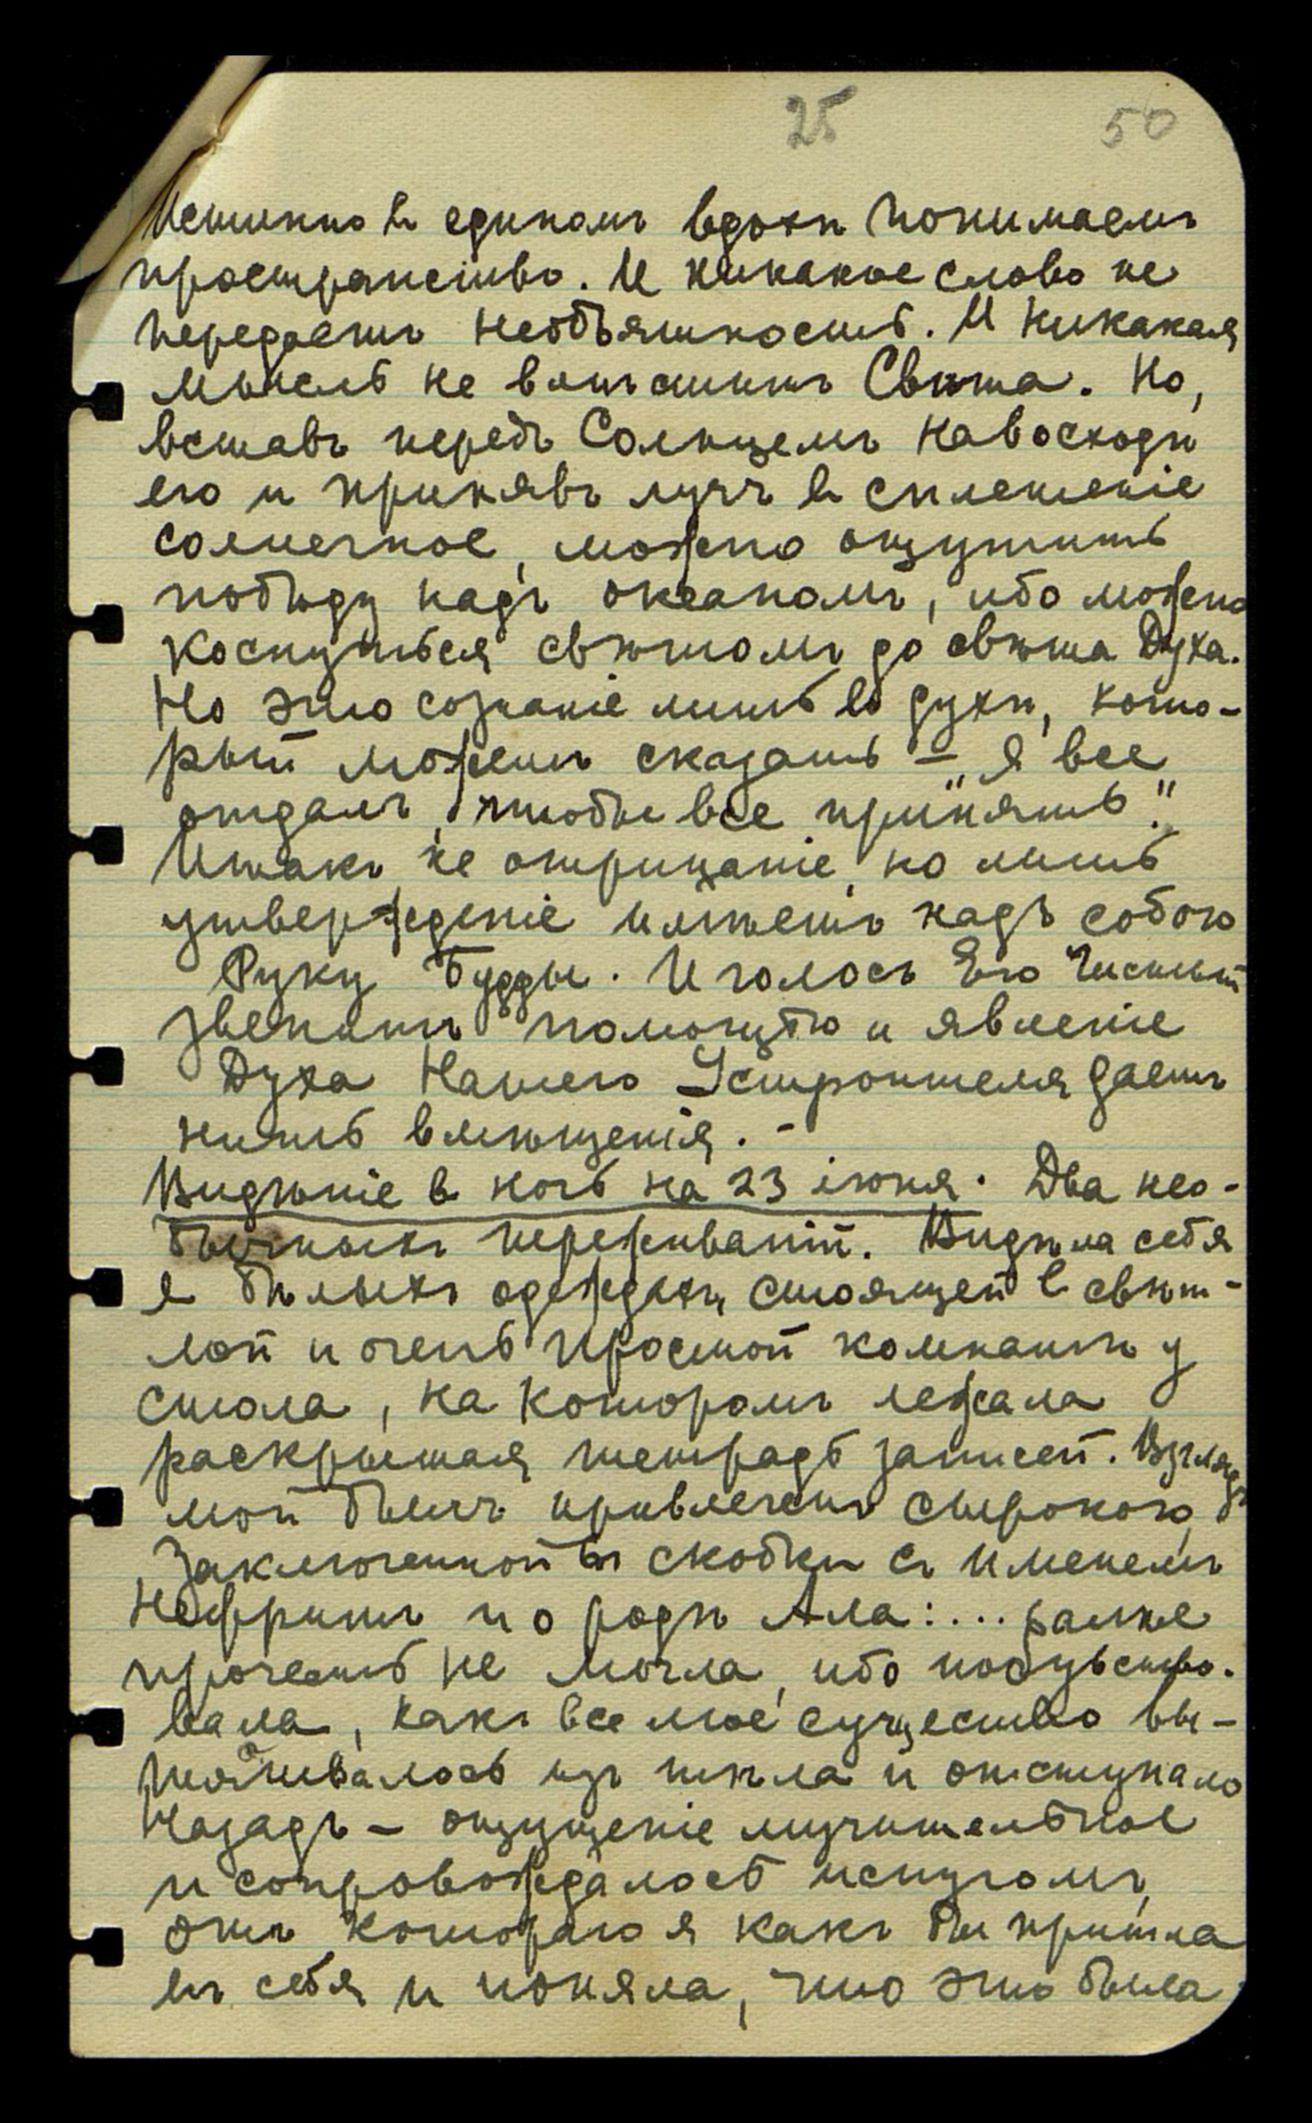 25 50
Истинно в единомъ вдохѣ понимаемъ
пространство. И никакое слово не
передаетъ Необъятность. И никакая
мысль не вмѣститъ Свѣта. Но,
вставъ передъ Солнцемъ на восходѣ
его и принявъ лучъ в сплетеніе
солнечное, можно ощутить
победу надъ океаномъ, ибо можно
коснуться свѣтомъ до свѣта Духа.
Но это сознаніе лишь в духѣ, кото-
рый можетъ сказать – „я все
отдалъ, чтобы все принять".
Итакъ не отрицаніе, но лишь
утвержденіе имѣетъ надъ собою
Руку Будды. И голосъ Его Чистый
звенитъ помощью и явленіе
Духа Нашего Устроителя даетъ
нить вмѣщенія. –
Видѣніе в ночь на 23 іюня. Два нео-
бычныхъ переживаній. Видѣла себя
в бѣлыхъ одеждахъ, стоящей в свѣт-
лой и очень простой комнатѣ у
стола, на которомъ лежала
раскрытая тетрадь записей. Взглядъ
мой былъ привлеченъ строкою,
Заключенной в скобки съ именемъ
Нефритъ и о родѣ Ала:... далѣе
прочесть не могла, ибо почувство-
вала, какъ все мое существо вы-
талкивалось изъ тѣла и отступало
Назадъ – ощущеніе мучительное
и сопровождалось испугомъ,
отъ котораго я какъ бы пришла
въ себя и поняла, что это была